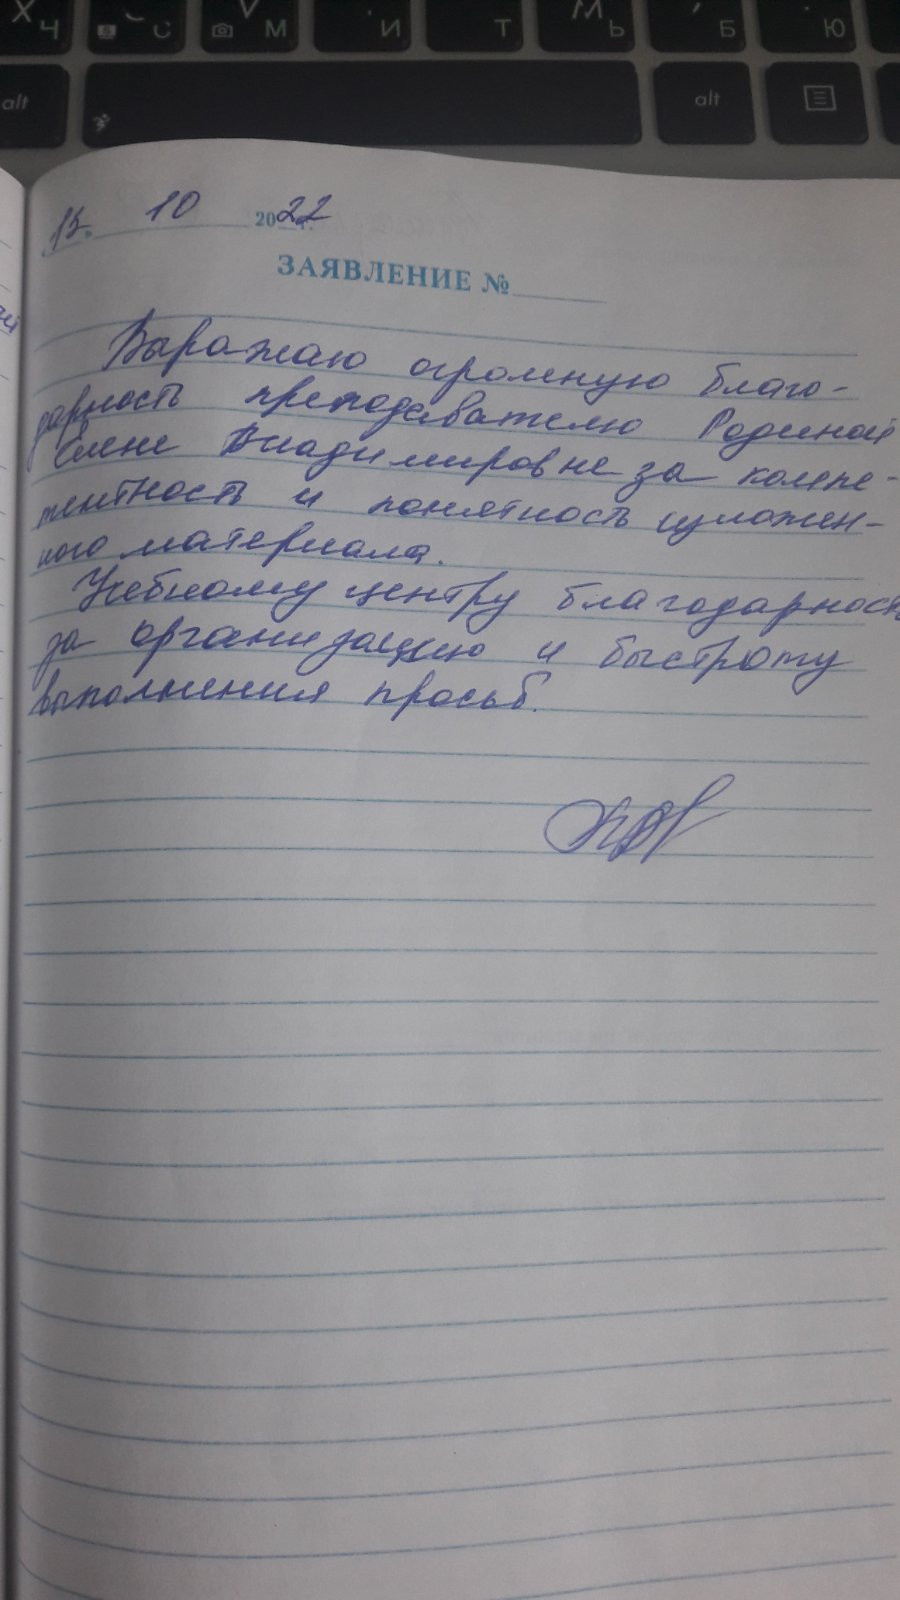 Ч С М И Т Ь Б Ю
X V
alt alt
15. 10 2022 г.
ЗАЯВЛЕНИЕ №
Выражаю огромную благо-
дарность преподавателю Родиной
Елене Владимировне за компе-
тентность и понятность изложен-
ного материала.
Учебному центру благодарность
за организацию и быстроту
выполнения просьб.